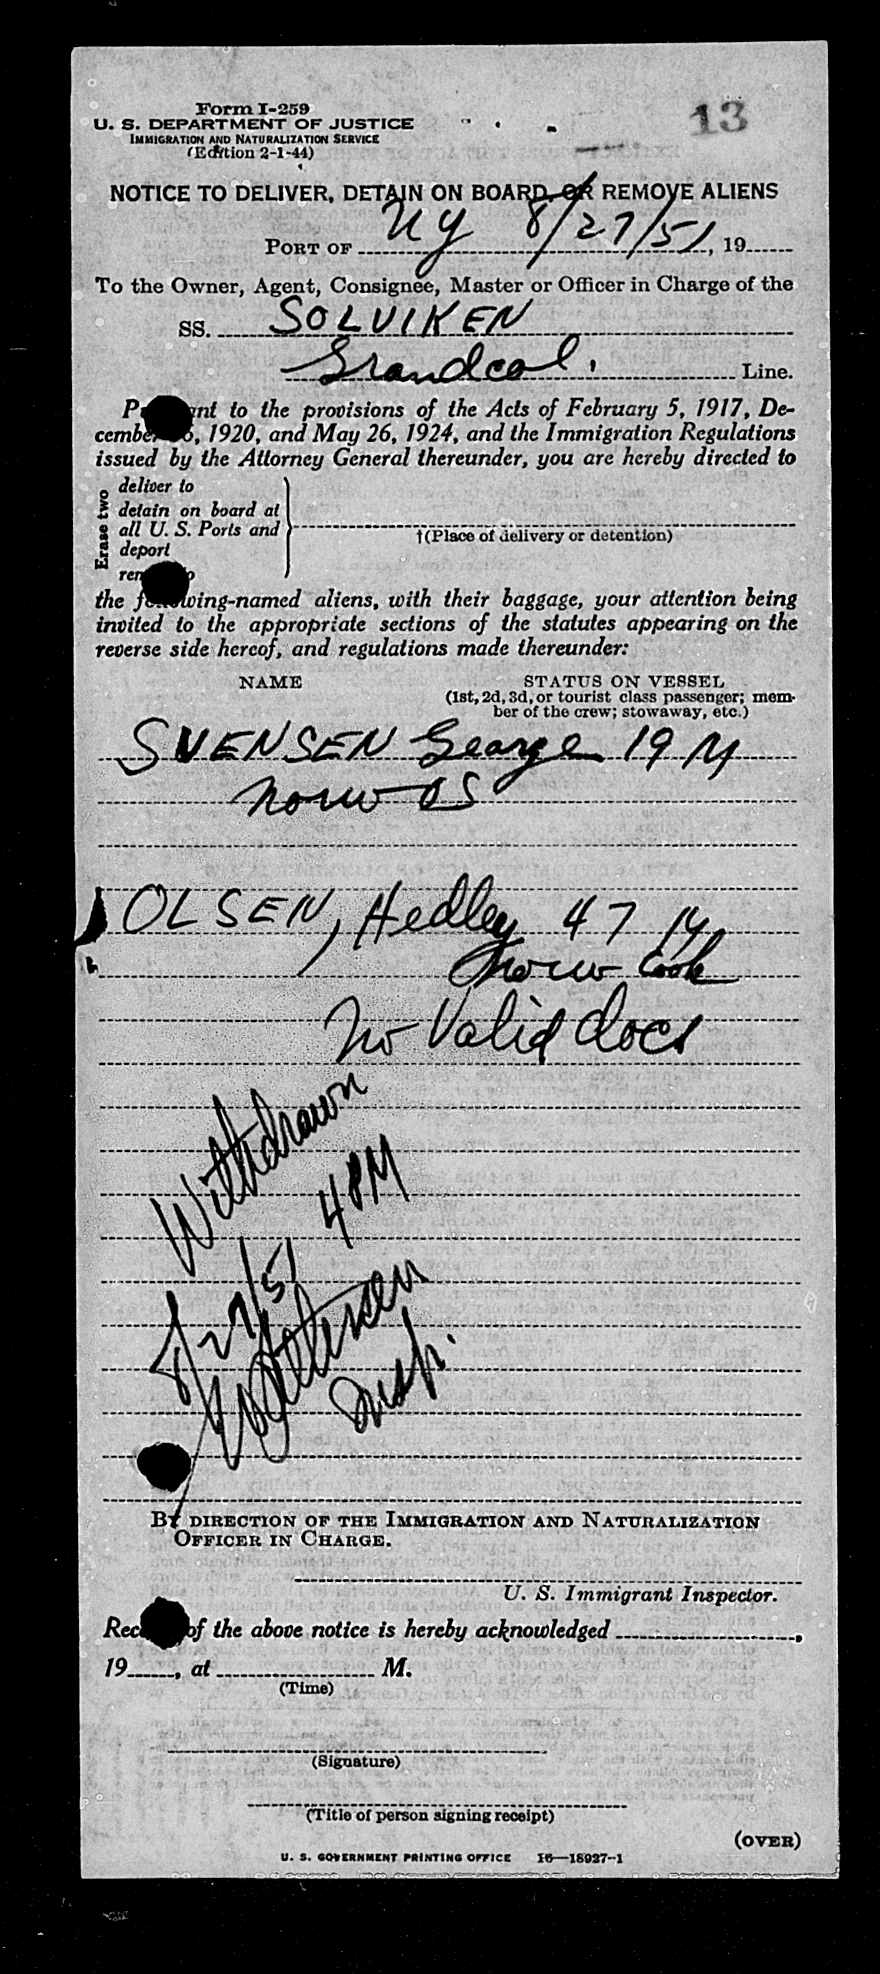 Form I-259
13
U. S. DEPARTMENT OF JUSTICE
IMMIGRATION AND NATURALIZATION SERVICE
(Edition 2-1-44)
NOTICE TO DELIVER, DETAIN ON BOARD, OR REMOVE ALIENS
PORT OF NY 8/27/51, 19
To the Owner, Agent, Consignee, Master or Officer in Charge of the
SS. SOLVIKEN
Grandcol. Line.
P nt to the provisions of the Acts of February 5, 1917, De-
cember 6, 1920, and May 26, 1924, and the Immigration Regulations
issued by the Attorney General thereunder, you are hereby directed to
Erase two
deliver to
detain on board at
all U. S. Ports and
deport
rem o
†(Place of delivery or detention)
the following-named aliens, with their baggage, your attention being
invited to the appropriate sections of the statutes appearing on the
reverse side hereof, and regulations made thereunder:
NAME STATUS ON VESSEL
(1st, 2d, 3d, or tourist class passenger; mem-
ber of the crew; stowaway, etc.)
SVENSEN George 19 M
Norw OS
OLSEN, Hedley 47 M
Norw Cook
No Valid docs
Withdrawn
8/27/51 4 PM
Insp.
BY DIRECTION OF THE IMMIGRATION AND NATURALIZATION
OFFICER IN CHARGE.
U. S. Immigrant Inspector.
Rec of the above notice is hereby acknowledged ,
19 , at M.
(Time)
(Signature)
(Title of person signing receipt)
(OVER)
U. S. GOVERNMENT PRINTING OFFICE 16—18927-1